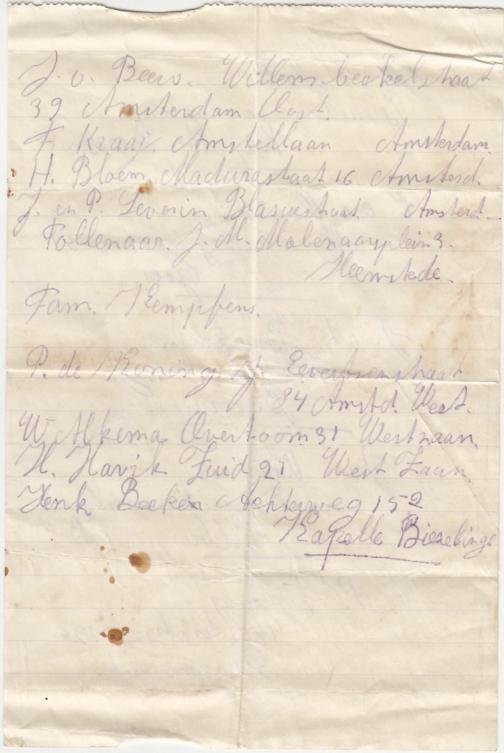 J. v. Beers. Willem beukelstraat
39 Amsterdam Oost.
F. Kraaj. Amstellaan Amsterdam.
H. Bloem Madurastaat 16 Amsterd.
J. en P. Severin Blasiusstraat. Amsterd.
Follenaar. J. M. Molenaarplein 3.
Heemstede.
Fam. Kemppens.
P. de Koning
84 Amstd. West.
W. Alkema Overtoom 31 Westzaan.
H. Havik Zuid 21 West Zaan
Henk Boeken Achterweg 152
Kapelle Biezelinge